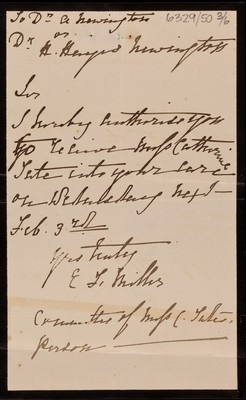 To Dr. A Newington 6329/50 3/6
or
Dr H. Hayes Newington
Sir
I hereby authorise you
to receive Miss Catherine
Tate into your care
on Wednesday next
Feb. 3rd
Yrs truly
E T. Miller
Committee of Miss C. Tate's
person